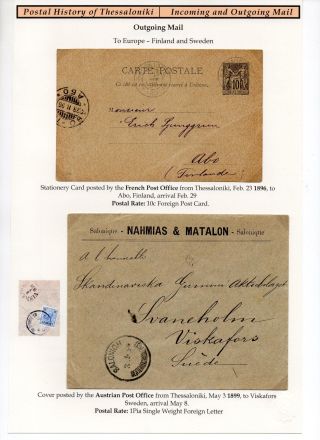 Postal History of Thessaloniki Incoming and Outgoing Mail
Outgoing Mail
To Europe – Finland and Sweden
CARTE POSTALE
Ce côté est exclusivement réservé à l'adresse.
10
Monsieur
Erich Gunggren
Abo
(Finlande)
ABO
Stationery Card posted by the French Post Office from Thessaloniki, Feb. 23 1896, to
Abo, Finland, arrival Feb. 29
Postal Rate: 10c Foreign Post Card.
Salonique - NAHMIAS & MATALON - Salonique
Skandinaviska Gummi Aktiebolaget
Svaneholm
Viskafors
Suède
SALONICH
Cover posted by the Austrian Post Office from Thessaloniki, May 3 1899, to Viskafors
Sweden, arrival May 8.
Postal Rate: 1Pia Single Weight Foreign Letter